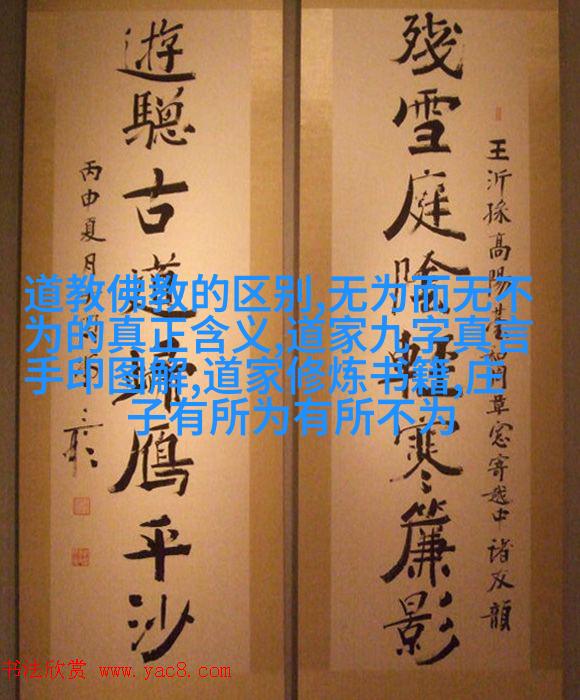 殘雪庭陰輕寒簾影
王沂孫高陽臺和周草窓寄越中諸友韻
遊驄古道歸鴈平沙
丙申夏月
道教佛教的区别,无为而无不
为的真正含义,道家九字真言
手印图解,道家修炼书籍,庄
子有所为有所不为
书法欣赏 www.yac8.com